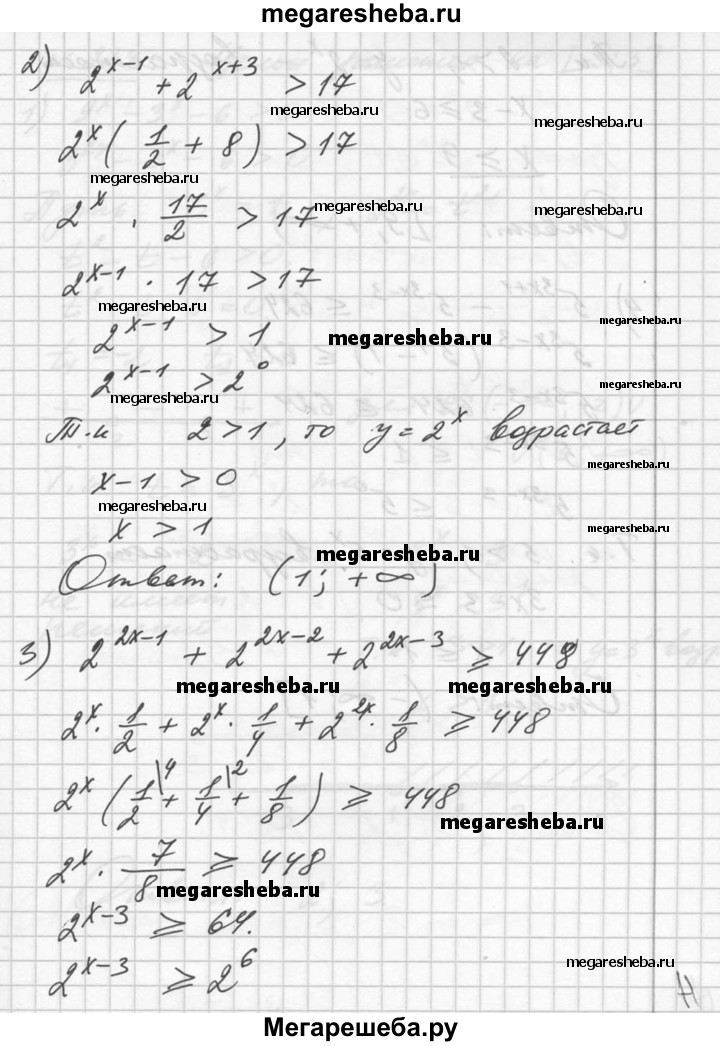 megaresheba.ru
2) 2^{x-1} + 2^{x+3} > 17
megaresheba.ru
2^x ( 1/2 + 8 ) > 17
megaresheba.ru
megaresheba.ru
2^x · 17/2 > 17 megaresheba.ru
megaresheba.ru
2^{x-1} · 17 > 17
megaresheba.ru
megaresheba.ru
2^{x-1} > 1 megaresheba.ru
2^{x-1} > 2^0
megaresheba.ru
megaresheba.ru
Т.к 2 > 1, то y = 2^x возрастает
megaresheba.ru
x - 1 > 0
megaresheba.ru
x > 1 megaresheba.ru
megaresheba.ru
Ответ: (1; +∞)
3) 2^{2x-1} + 2^{2x-2} + 2^{2x-3} ⩾ 448
megaresheba.ru megaresheba.ru
2^x · 1/2 + 2^x · 1/4 + 2^{2x} · 1/8 ⩾ 448
2^x ( 1/2 \4 + 1/4 \2 + 1/8 ) ⩾ 448
megaresheba.ru
2^x · 7/8 ⩾ 448
megaresheba.ru
2^{x-3} ⩾ 64.
2^{x-3} ⩾ 2^6
megaresheba.ru
Мегарешеба.ру